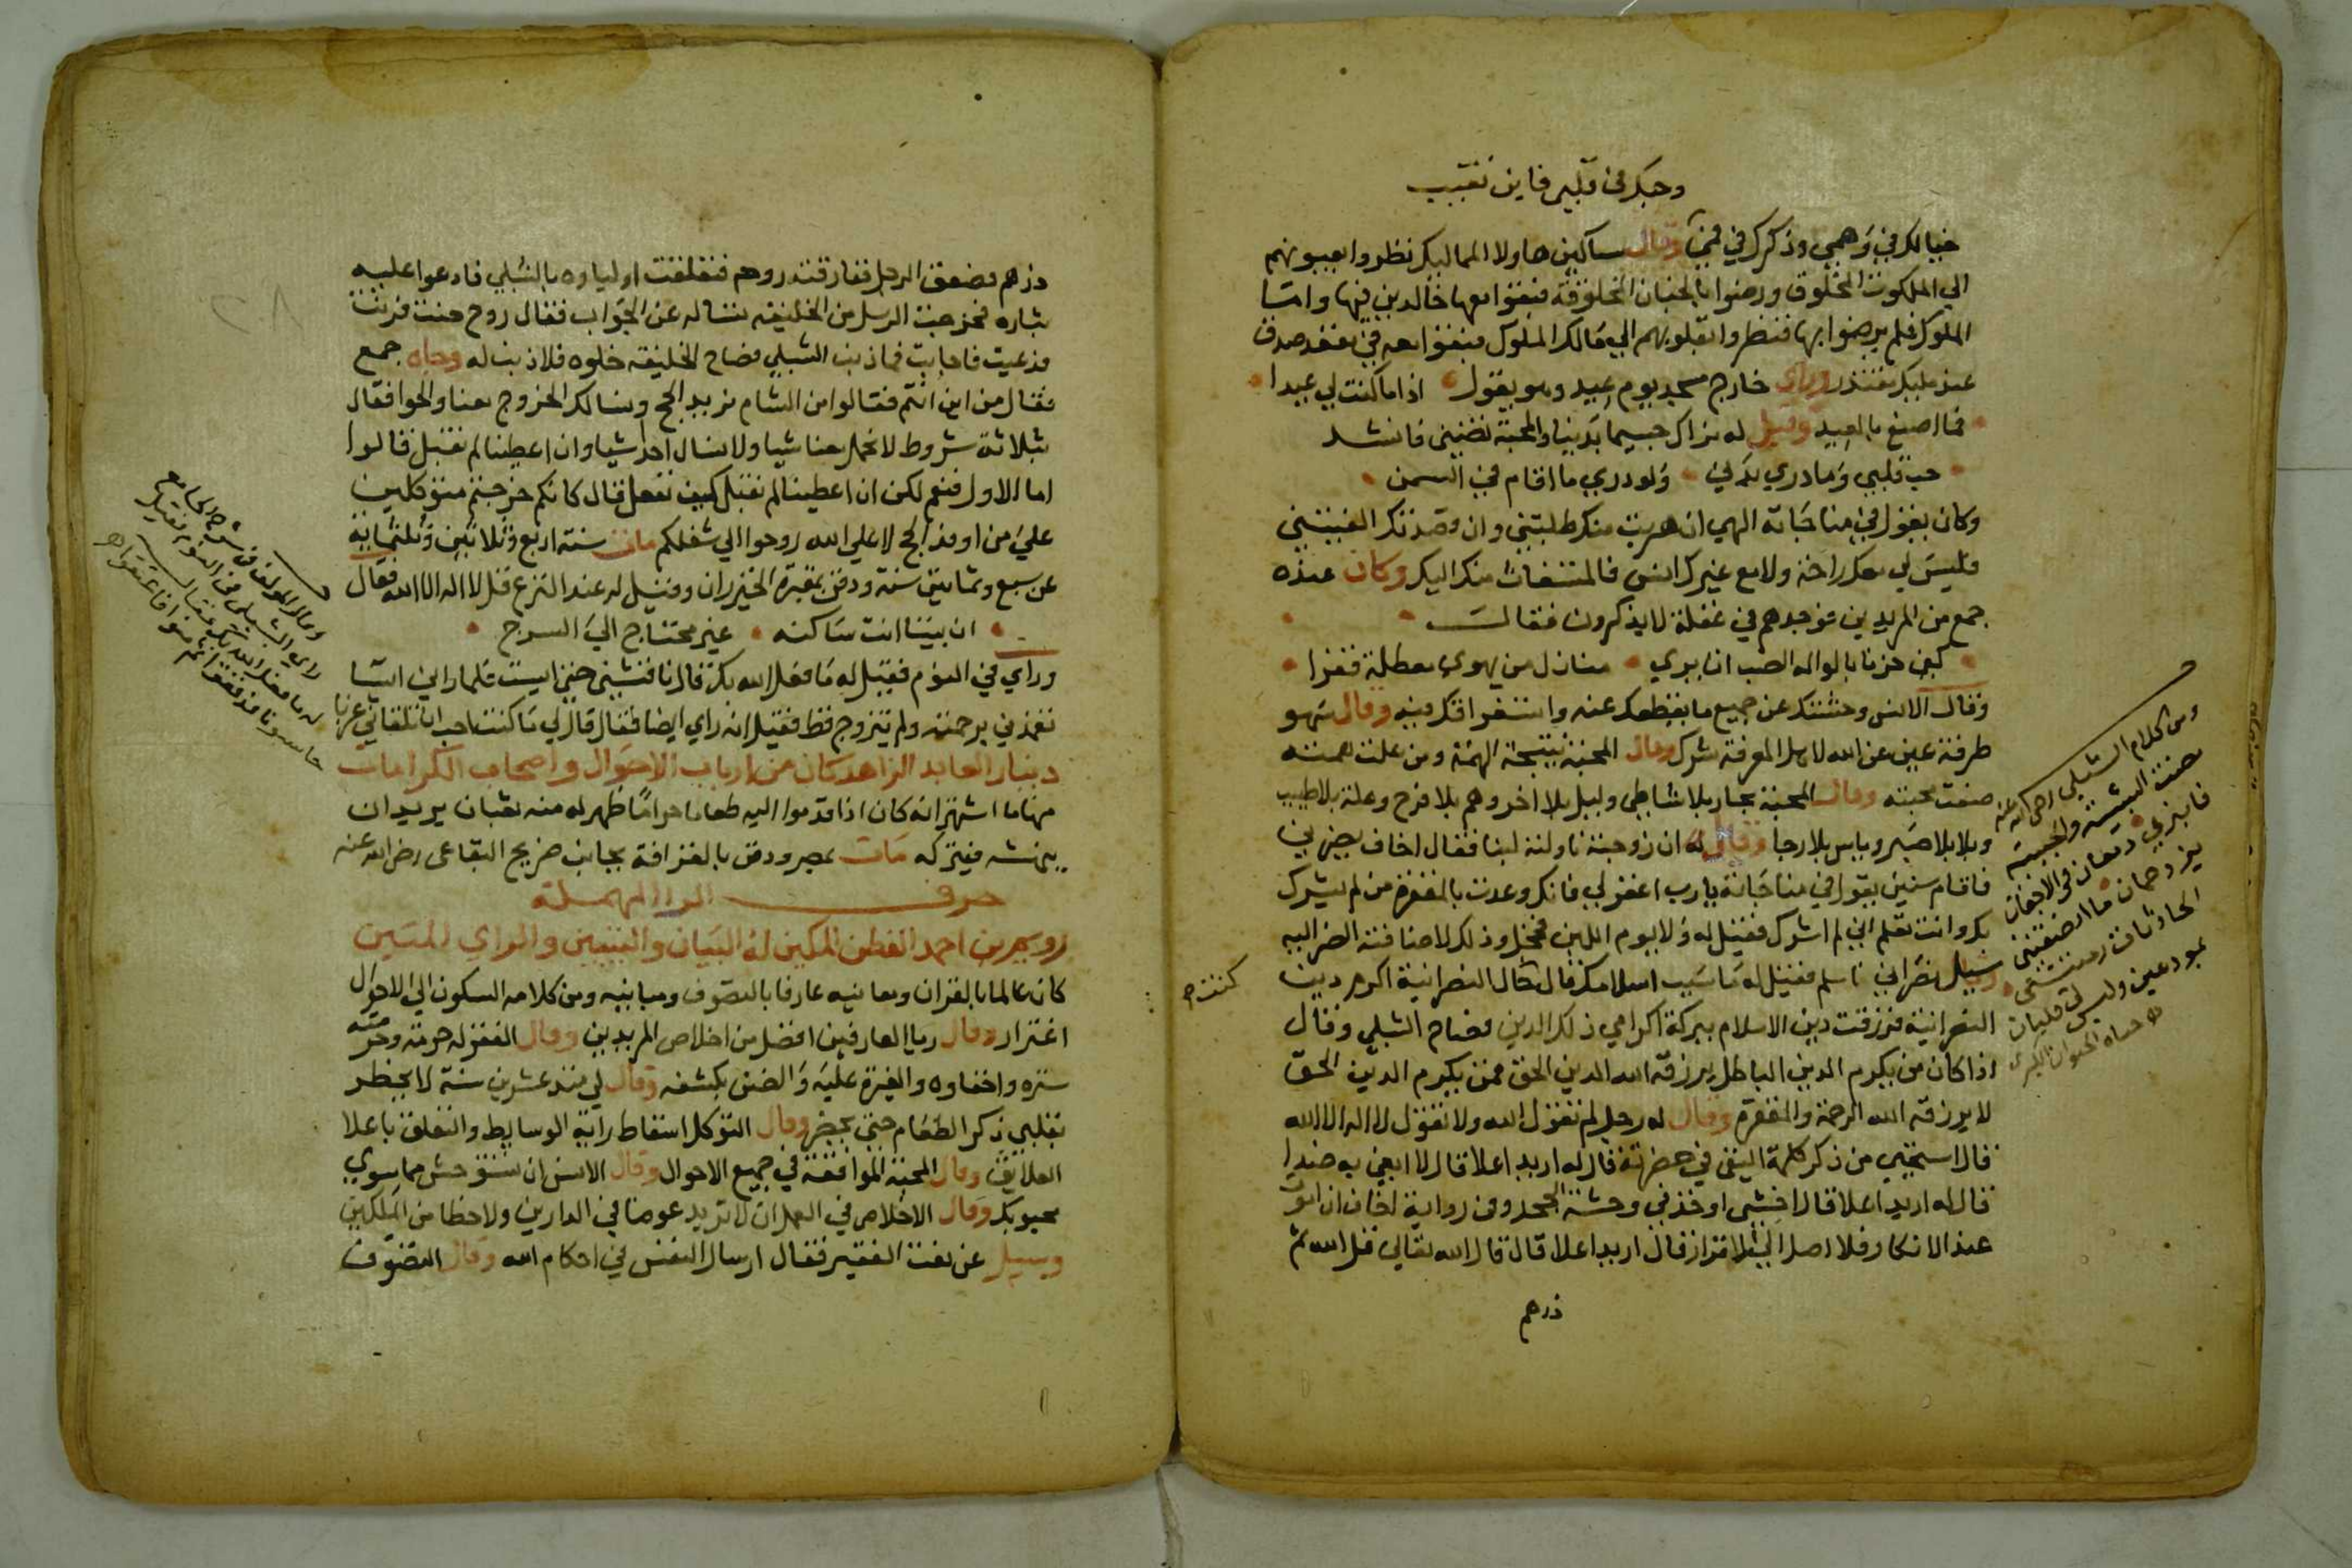 وحبك في قلبي فاين تغيب
خيالك في وهمي وذكرك في فمي وقال مساكين هاولا المماليك نظروا بعيونهم
الي الملكوت المخلوق ورضوا بالجنان المخلوقة فبقوا معها خالدين فيها واما
الملوك فلم يرضوا بها فنظروا بقلوبهم الي مالك الملوك فبقوا معه في مقعد صدق
عند مليك مقتدر وراي خارج مسجد يوم عيد وهو يقول اذا ما كنت لي عيدا
فما اصنع بالعيد وقيل له نراك جسيما بدينا والمحبة تضني فانشد
حب قلبي وما دري بدني ولو دري ما اقام في السمن
وكان يقول في مناجاته الهي ان هربت منك طلبتني وان قصدتك
فليس لي معك راحة ولا مع غيرك انس فالمستغاث منك اليك وكان عنده
جمع من المريدين فوجدهم في غفلة لا يذكرون فقال
كفي حزنا بالواله الصب ان يري منازل من يهوي معطلة قفرا
وقال الانس وحشتك عن جميع ما يقطعك عنه واستغراقك فيه وقال سهو
طرفة عين عن الله لاهل المعرفة شرك وقال المحبة نتيجة الهمة ومن علت همته
صفت محبته وقال المحبة بحار بلا شاطي وليل بلا اخر وهم بلا فرح وعلة بلا طبيب
وبلا بلا صبر وياس بلا رجا وقال له ان زوجته ناولته لبنا فقال اخاف يضرني
فاقام سنين يقول في مناجاته يا رب اغفر لي فانك وعدت بالمغفرة من لم يشرك
بك وانت تعلم اني لم اشرك فقيل له ولا يوم اللبن فخجل وذلك لاضافته الضر اليه
نصراني فاسلم فقيل له ما سبب اسلامك قال كان النصرانية اكرم دين
النصرانية فرزقت دين الاسلام ببركة اكرامي ذلك الدين فصاح الشبلي وقال
اذا كان من يكرم الدين الباطل يرزقه الله الدين الحق فمن يكرم الدين الحق
لا يرزقه الله الرحمة والمغفرة وقال له رجل لم تقول الله ولا تقول لا اله الا الله
قال استحي من ذكر كلمة النفي في حضرته قال له اريد اعلا قال لا ابغي به ضدا
قال له اريد اعلا قال اخشي اوخذ في وحشة الجحد وفي رواية اخاف ان اموت
عند الانكار فلا اصل الي الاقرار قال اريد اعلا قال قال الله تعالي قل الله ثم
ذرهم
ومن كلام الشبلي
ما انصفتني
الحادثات رمينني
بمودعين وليس لي قلبان
حياة الحيوان الكبري
كنت
ذرهم فصعق الرجل ففارقته روحه فتعلقت اولياوه بالشبلي فادعوا عليه
بثاره فخرجت الرسل من الخليفة تساله عن الجواب فقال روح حنت فرنت
فدعيت فاجابت فما ذنب الشبلي فصاح الخليفة خلوه فلا ذنب له وجاه جمع
فقال من اين انتم فقالوا من الشام نريد الحج ونسالك الخروج معنا والحوا فقال
بثلاثة شروط لا نحمل معنا شيا ولا نسال احدا شيا وان اعطينا لم نقبل قالوا
اما الاول فنعم لكن ان اعطينا لم نقبل كيف نفعل قال كانكم خرجتم متوكلين
علي من اوفد الحج لا علي الله روحوا الي شغلكم مات سنة اربع وثلاثين وثلثماية
عن سبع وثمانين سنة ودفن بمقبرة الخيزران وقيل له عند النزع قل لا اله الا الله فقال
ان بيتا انت ساكنه غير محتاج الي السرج
وراي في النوم فقيل له ما فعل الله بك قال ناقشني حتي ايست فلما راي اياسي
تغمدني برحمته ولم يتزوج قط فقيل انه راي ايضا فقال قال لي ما كنت احب ان تلقاني عزبا
دينار العابد الزاهد كان من ارباب الاحوال واصحاب الكرامات
منها ما اشتهر انه كان اذا قدموا اليه طعاما حراما ظهر له منه ثعبان يريد ان
ينهشه فيتركه مات بمصر ودفن بالقرافة بجانب ضريح البقاعي رضي الله عنه
حرف الرا المهملة
رويم بن احمد الفطن المكين له البيان والتبيين والراي المتين
كان عالما بالقران ومعانيه عارفا بالتصوف ومبانيه ومن كلامه السكون الي الاحوال
اغترار وقال ريا العارفين افضل من اخلاص المريدين وقال الفقر له حرمة وحرمته
ستره واخفاوه والغيرة عليه والضن بكشفه وقال لي منذ عشرين سنة لا يخطر
بقلبي ذكر الطعام حتي يحضر وقال التوكل اسقاط راية الوسايط والتعلق باعلا
العلايق وقال المحبة الموافقة في جميع الاحوال وقال الانس ان تستوحش مما سوي
محبوبك وقال الاخلاص في العمل ان لا تريد عوضا في الدارين ولا حظا من الملكين
وسيل عن نعت الفقير فقال ارسال النفس في احكام الله وقال التصوف
راي الشبلي في النوم فقيل
له ما فعل الله بك فقال
حاسبونا فدققوا ثم منوا فاعتقوا